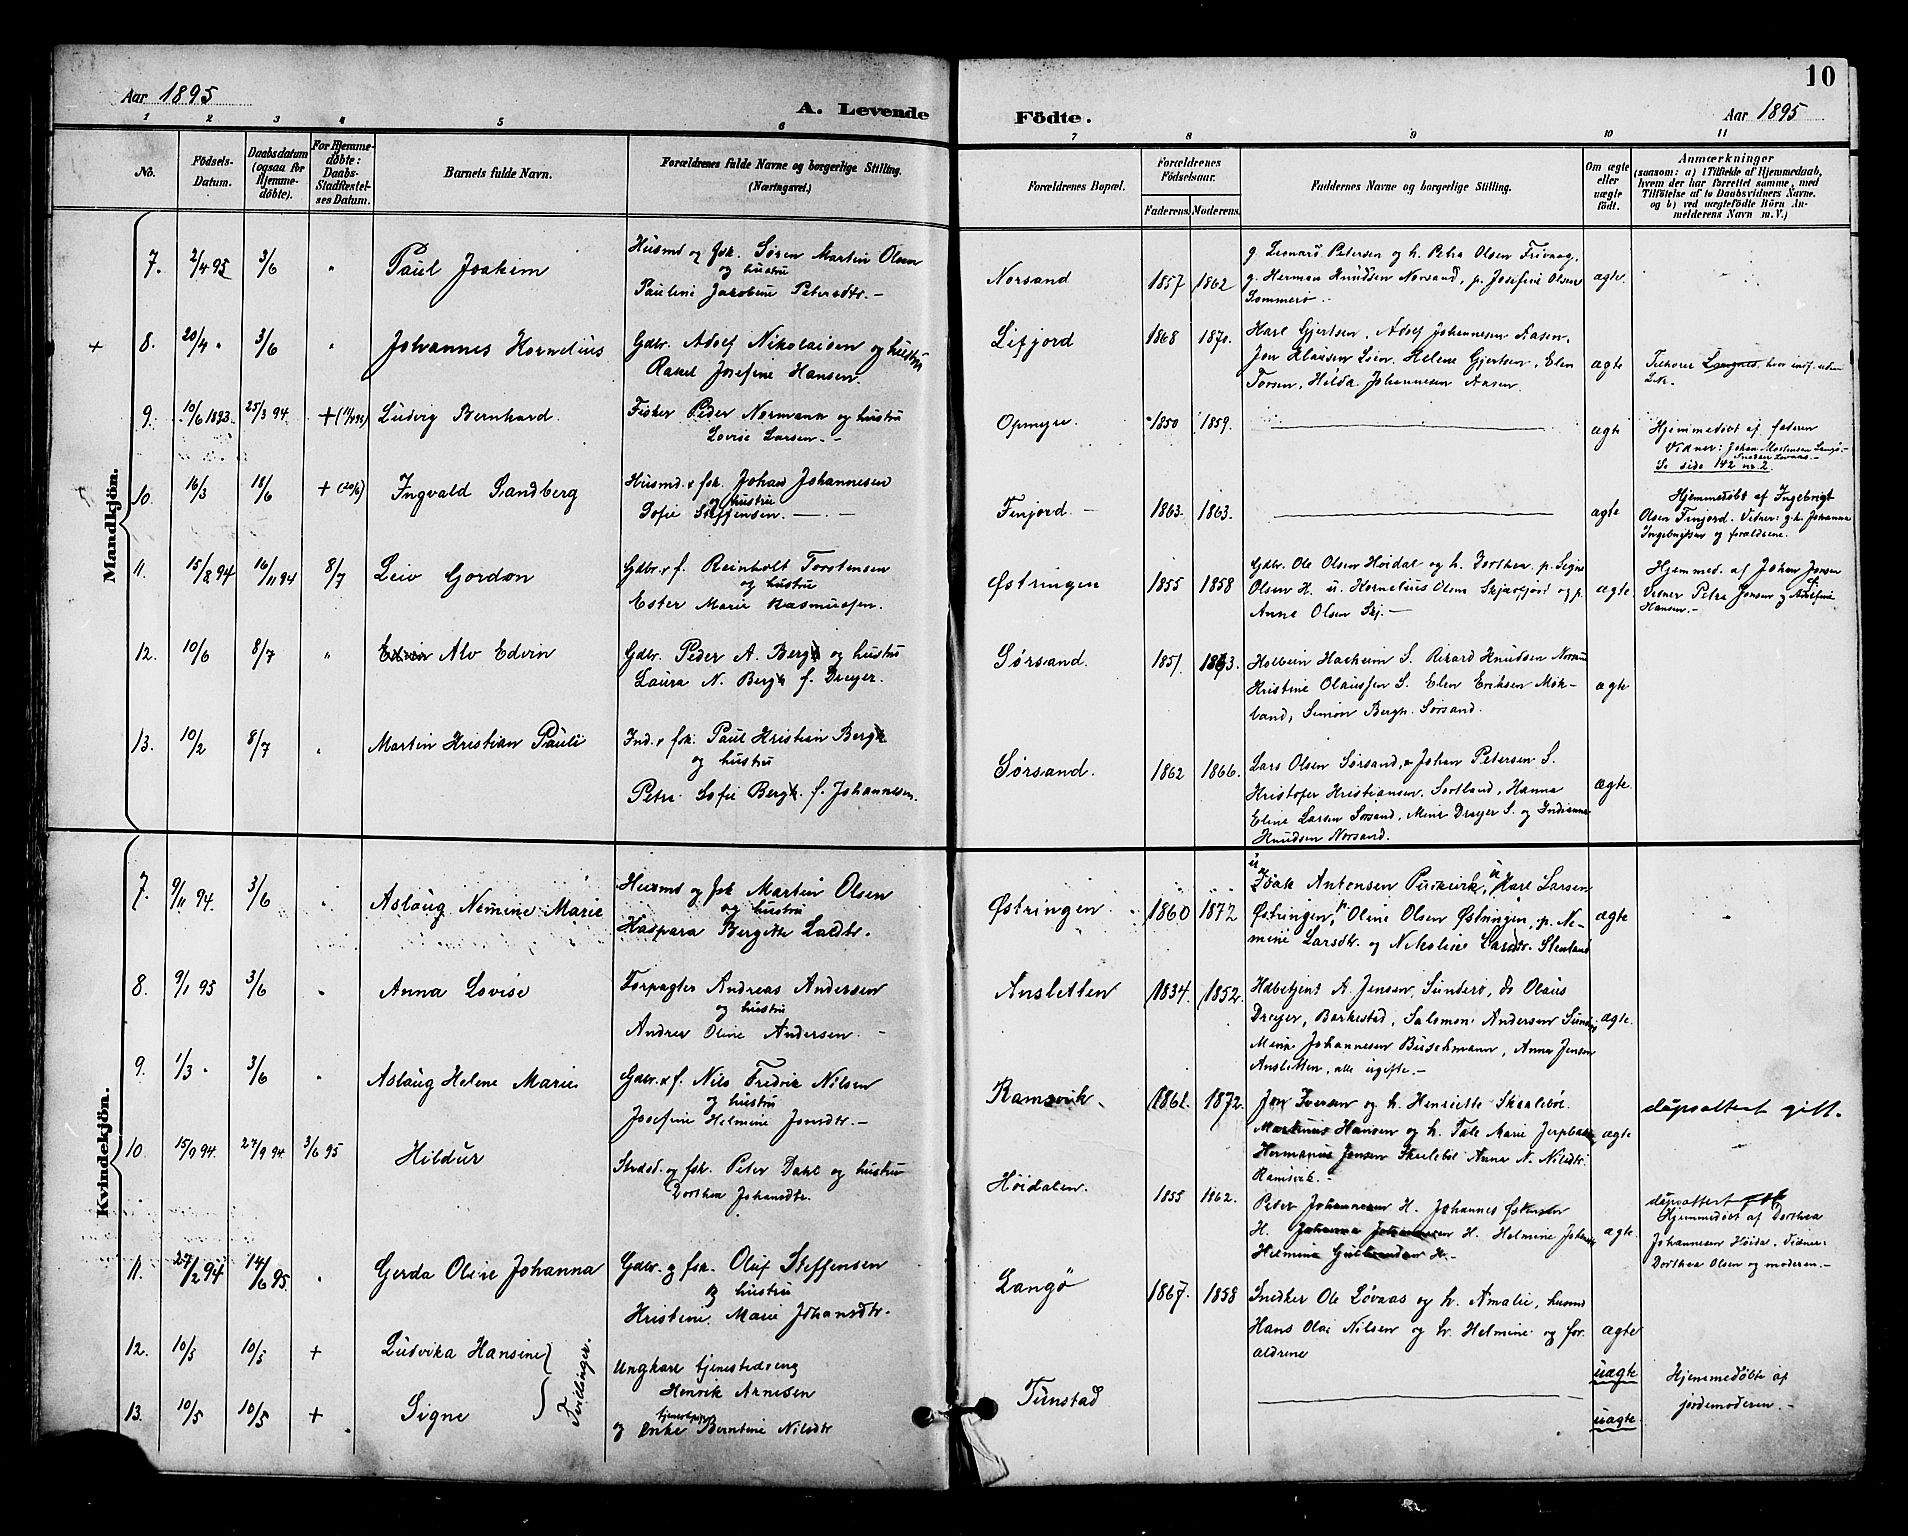 10
Aar 1895
A. Levende
Födte.
Aar 1895
1 2 3 4 5 6 7 8 9 10 11
No.
Födsels-
Datum.
Daabsdatum
(ogsaa for
Hjemme-
döbte).
For Hjemme-
döbte:
Daabs-
Stadfæstel-
ses Datum.
Barnets fulde Navn.
Forældrenes fulde Navne og borgerlige Stilling.
(Næringsvei.)
Forældrenes Bopæl.
Forældrenes
Födselsaar.
Faderens. Moderens.
Faddernes Navne og borgerlige Stilling.
Om ægte
eller
uægte
födt.
Anmærkninger
(saasom: a) i Tilfælde af Hjemmedaab,
hvem der har forrettet samme, med
Tilföielse af to Daabsvidners Navne.
og b) ved uægtefödte Börn An-
melderens Navn m. V.)
Mandkjön.
7. 2/4 95 3/6 " Paul Joakim
Husmd og fsk. Sören Martin Olsen
og hustru
Pauline Jacobine Petersdtr. -
Norsand 1857 1862
g. Leonard Petersen og h. Petra Olsen Frivaag,
g. Herman Knudsen Norsand, p. Josefine Olsen
Sommerö. -
ægte.
+ 8. 20/4 " 3/6 " Johannes Kornelius
Gdbr. Adolf Nikolaisen og hustru
Rakel Josefine Hansen.
Lifjord 1868 1870.
Karl Gjertsen, Adolf Johannesen Aasen,
Jon Klausen Loen, Helene Gjertsen, Elen
Torsen, Hilda Johannesen Aasen.
ægte
Tilhører Langnes, hvor indf. uden
9. 10/6 1893. 25/3 94 + Ludvig Bernhard.
Fisker Peder Normann og hustru
Lovise Larsen. -
Opmyre. 1850 1859.
ægte
Hjemmedöbt af faderen
Vidner: Johan Mortensen Langö. -
Se side 142 nr. 2.
10. 16/3 18/6 + (20/6) Ingvald Sandberg
Husmd. & fsk. Johan Johannesen
og hustru
Sofie Steffensen. -
Finjord - 1863. 1863.
ægte
Hjemmedöbt af Ingebrigt
Olsen Finjord. Vidner: g. h. Johanna
Ingebrigtsen og forældrene.
11. 15/8 94 16/11 94 8/7 Leiv Gordon
Gdbr. & f. Reinholt Torstensen
og hustru
Ester Marie Rasmussen.
Østringen 1855 1858
Gdbr. Ole Olsen Höidal og h. Dorthea. p. Signe
Olsen H. u. Kornelius Olsen Skjærfjord og p.
Anne Olsen Skj. -
ægte.
Hjemmed. af Johan Jensen
Vidner Petra Jensen og Adolfine
Hansen. -
12. 10/6 8/7 " Edvin Alv Edvin
Gdbr. Peder A. Bergh og hustru
Laura N. Bergh f. Dreyer.
Sørsand. 1851. 1863.
Holbein Hacheim S. Rikard Knudsen Norsand
Kristine Olaussen S. Elen Eriksen Mök-
land, Simon Bergh. Sørsand.
ægte
13. 10/2 8/7 " Martin Kristian Pauli
Ind. & fsk. Paul Kristian Bergh
og hustru
Petra Sofie Bergh. f. Johannesen.
Sørsand. 1862 1866.
Lars Olsen Sørsand, & Johan Petersen S.
Kristofer Kristiansen, Sortland, Hanna
Eline Larsen Sørsand, Mina Dreyer S. og Indianna
Knudsen Norsand.
ægte.
Kvindekjön.
7. 9/11 94. 3/6 " Aslaug Nemine Marie
Husmd og fsk Martin Olsen
og hustru
Kaspara Bergitte Ladtr.
Østringen. 1860 1872
Isak Antonsen Puskvik, Karl Larsen
Østringen, Oline Olsen Østringen, p. Ne-
mine Larsdtr. og Nikoline Larsdtr. Stenland
ægte
8. 9/1 95 3/6 " Anna Lovise
Forpagter Andreas Andersen
og hustru
Andrea Oline Andersen. -
Ansletten 1834. 1852.
Hdbetjent A. Jensen, Sunderö, do Olaus
Dreyer, Barkestad, Salomon Andersen
Mina Johannesen Buschmann, Anna Jensen
Ansletten, alle ugifte. -
ægte.
9. 1/3 " 3/6 " Aslaug Helene Marie
Gdbr. & f. Nils Fredrik Nilsen
og hustru
Josefine Helmine Jonsdtr. -
Ramsvik. 1861. 1872.
Jon Iversen og h. Henriette Skaaleböe.
Markus Hansen og h. Tale Marie
Hermanius Jensen Skaaleböe Anna N. Nilsdtr.
Ramsvik. -
ægte
dåpsattest gitt.
10. 15/9 94. 27/9 94. 3/6 95 Hildur
Strdsd. og fsk. Peter Dahl og hustru
Dorthea Johansdtr.
Höidalen. 1855 1862.
Peder Johannesen H. Johannes
H. Johanna Johannesen H. Helmine
Helmine H. -
ægte
dåpsattest
Hjemmedöbt af Dorthea
Johannesen Höidal. Vidner:
Dorthea Olsen og moderen. -
11. 27/2 94 14/6 95. " Gerda Oline Johanna
Gdbr. og fsk. Oluf Steffensen
og hustru
Kristine Marie Johansdtr.
Langö 1867. 1858
Snedker Ole Lövaas og h. Amalie, husmd
Hans Olai Nilsen og h. Helmine og for
ældrene
ægte
12. 10/5 10/5 + Ludvika Hansine
13. 10/5 10/5 + Signe
Tvillinger.
Ungkarl tjenestedreng
Henrik Arnesen
og Enke Berntine Nilsdtr
Tunstad
uægte
uægte
Hjemmedöbte af
jordemoderen. -